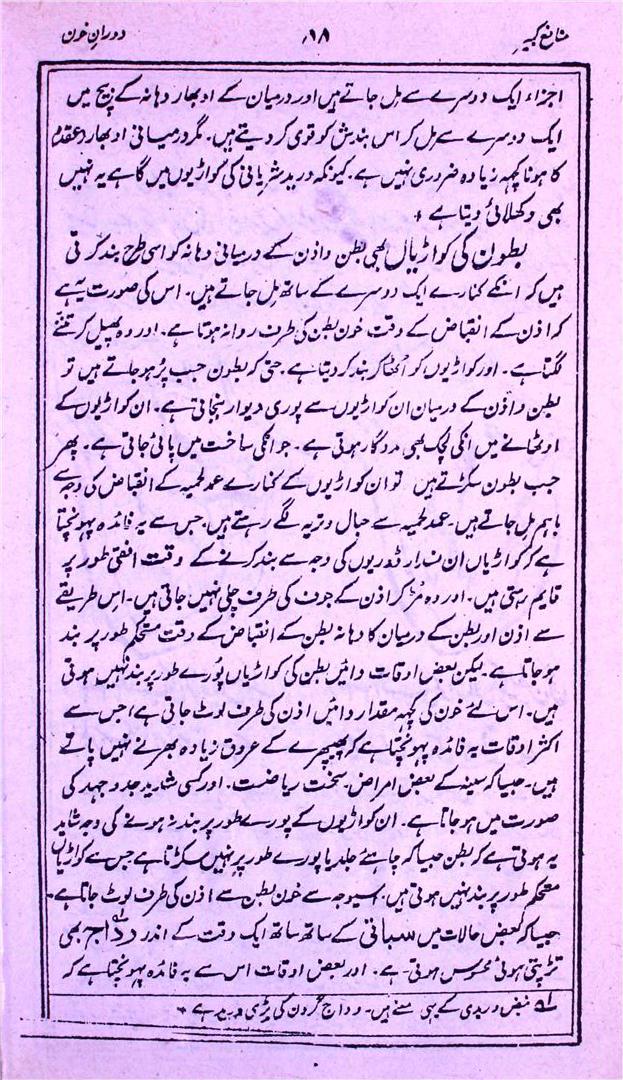 منافع کبیر
۱۸
دوران خون
اجزاء ایک دوسرے سے مل جاتے ہیں اور درمیان کے اوبھار دہانہ کے بیچ میں
ایک دوسرے سے مل کر اس بندش کو قوی کر دیتے ہیں۔ مگر درمیانی اوبھار (عقد)
کا ہونا کچھہ زیادہ ضروری نہیں ہے۔ کیونکہ ورید شریانی کی کواڑیوں میں گاہے یہ نہیں
بھی دکھلائی دیتا ہے +
بطون کی کواڑیاں بھی بطن و اذن کے درمیانی دہانہ کو اسی طرح بند کرتی
ہیں کہ انکے کنارے ایک دوسرے کے ساتھ مل جاتے ہیں۔ اس کی صورت یہ ہے
کہ اذن کے انقباض کے وقت خون بطن کی طرف روانہ ہوتا ہے۔ اور وہ پھیل کر تننے
لگتا ہے۔ اور کواڑیوں کو اٹھا کر بند کر دیتا ہے۔ حتی کہ بطون جب پر ہو جاتے ہیں تو
بطن و اذن کے درمیان ان کواڑیوں سے پوری دیوار بنجاتی ہے۔ ان کواڑیوں کے
اوٹھانے میں انکی لچک بھی مددگار ہوتی ہے۔ جو انکی ساخت میں پائی جاتی ہے۔ پھر
جب بطون سکڑتے ہیں تو ان کواڑیوں کے کنارے عمد لحمیہ کے انقباض کی وجہ سے
باہم مل جاتے ہیں۔ عمد لحمیہ سے حبال وتریہ لگے رہتے ہیں، جس سے یہ فائدہ پہونچتا
ہے کہ کواڑیاں ان ڈوریوں کی وجہ سے بند کرنے کے وقت افقی طور پر
قایم رہتی ہیں۔ اور وہ مڑ کر اذن کے جوف کی طرف چلی نہیں جاتی ہیں۔ اس طریقے
سے اذن اور بطن کے درمیان کا دہانہ بطن کے انقباض کے وقت مستحکم طور پر بند
ہو جاتا ہے۔ لیکن بعض اوقات دائیں بطن کی کواڑیاں پورے طور پر بند نہیں ہوتی
ہیں۔ اس لئے خون کی کچھہ مقدار دائیں اذن کی طرف لوٹ جاتی ہے، جس سے
اکثر اوقات یہ فائدہ پہونچتا ہے کہ پھیپھڑے کے عروق زیادہ بھرنے نہیں پاتے
ہیں۔ جیسا کہ سینہ کے بعض امراض۔ سخت ریاضت۔ اور کسی شدید جدوجہد کی
صورت میں ہو جاتا ہے۔ ان کواڑیوں کے پورے طور پر بند نہ ہونے کی وجہ شاید
یہ ہوتی ہے کہ بطن جیسا کہ چاہئے جلد یا پورے طور پر نہیں سکڑتا ہے جس سے کواڑیاں
مستحکم طور پر بند نہیں ہوتی ہیں۔ اسیوجہ سے خون بطن سے اذن کی طرف لوٹ جاتا ہے۔
جیسا کہ بعض حالات میں سباتی کے ساتھ ساتھ ایک وقت کے اندر وداج بھی
تڑپتی ہوئی محسوس ہوتی ہے۔ اور بعض اوقات اس سے یہ فائدہ پہونچتا ہے کہ
لہ نبض وریدی کے یہی معنے ہیں۔ وداج گردن کی بڑی ورید ہے +